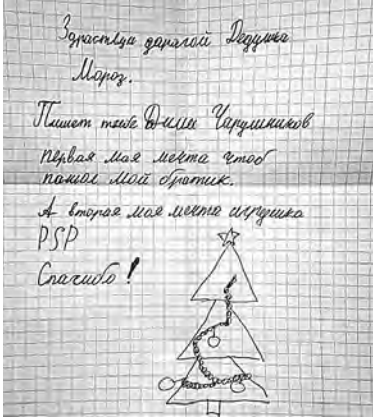 Здраствуи дарагой Дедушка
Мороз.
Пишет тебе Дима Чарушников
первая моя мечта чтоб
пашол мой братик.
А вторая моя мечта игрушка
PSP
Спасибо!